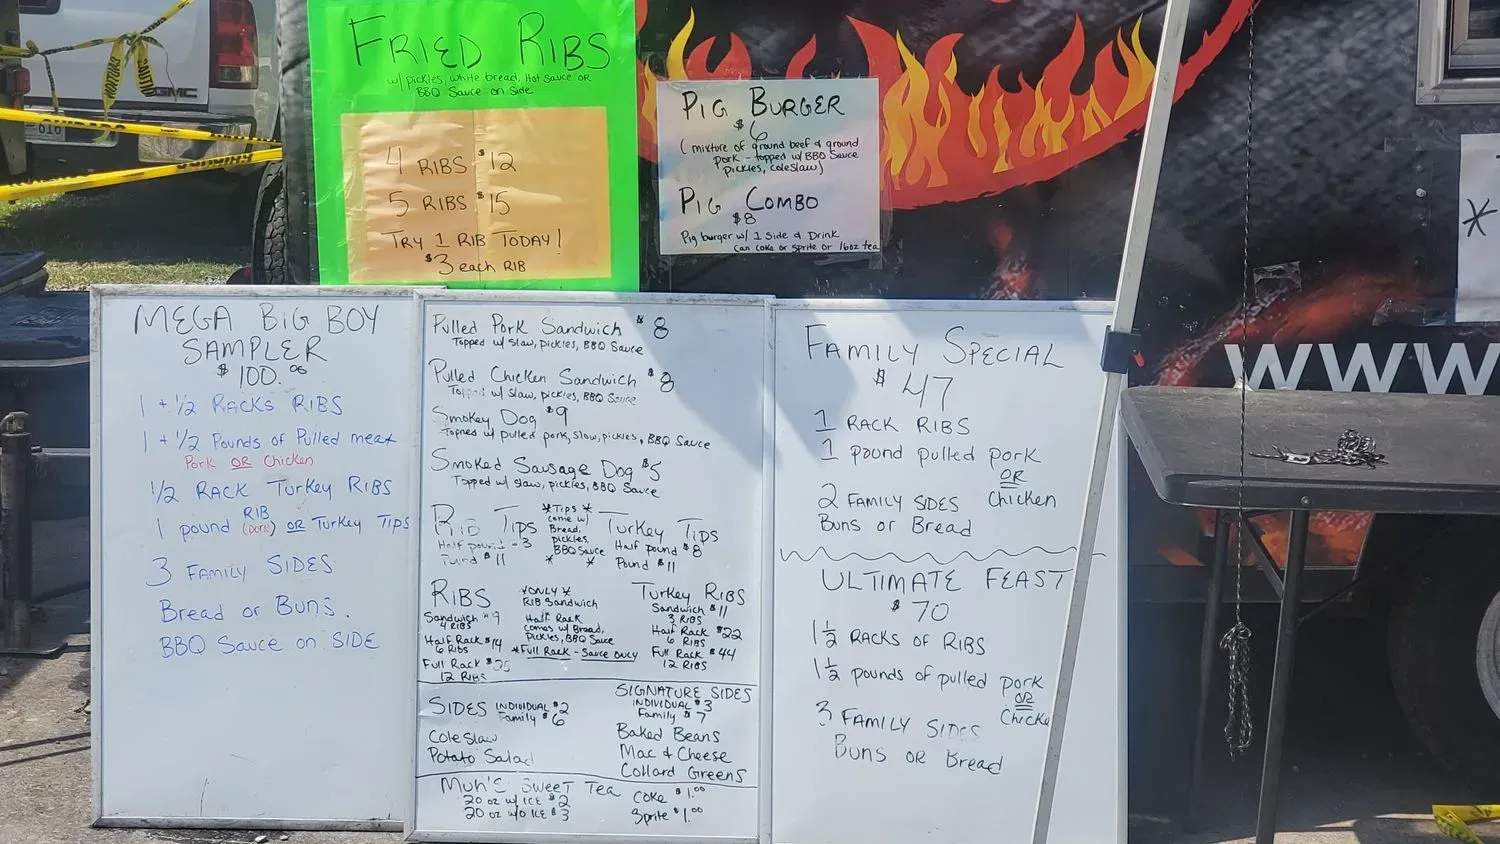 FRIED RIBS
w/ pickles, white bread, Hot Sauce OR
BBQ Sauce on Side
4 RIBS $12
5 RIBS $15
TRY 1 RIB TODAY!
$3 each RIB
PIG BURGER
$6
(mixture of ground beef & ground
pork - topped w/ BBQ Sauce
pickles, coleslaw)
PIG COMBO
$8
Pig burger w/ 1 Side & Drink
Can coke or sprite or 16oz tea
GMC
CAUTION
616
*
WWW
MEGA BIG BOY
SAMPLER
$100.00
1 + 1/2 RACKS RIBS
1 + 1/2 Pounds of Pulled meat
Pork OR Chicken
1/2 RACK Turkey RIBS
RIB
1 pound (Pork) OR Turkey TIPS
3 FAMILY SIDES
Bread or Buns.
BBQ Sauce on SIDE
Pulled Pork Sandwich $8
Topped w/ slaw, pickles, BBQ Sauce
Pulled Chicken Sandwich $8
Topped w/ slaw, pickles, BBQ Sauce
Smokey Dog $9
Topped w/ pulled pork, slaw, pickles, BBQ Sauce
Smoked Sausage Dog $5
Topped w/ slaw, pickles, BBQ Sauce
RIB TIPS
Half pound
Pound $11
*Tips*
come w/
Bread,
pickles,
BBQ Sauce
* *
Turkey Tips
Half pound $8
Pound $11
RIBS
Sandwich $9
4 RIBS
Half Rack $14
6 RIBS
Full Rack $25
12 RIBS
*ONLY*
RIB Sandwich
Half Rack
comes w/ Bread,
Pickles, BBQ Sauce
*Full Rack - Sauce Only
Turkey RIBS
Sandwich $11
3 RIBS
Half Rack $22
6 RIBS
Full Rack $44
12 RIBS
SIDES INDIVIDUAL $2
Family $6
Coleslaw
Potato Salad
SIGNATURE SIDES
INDIVIDUAL $3
Family $7
Baked Beans
Mac & Cheese
Collard Greens
Sweet Tea
20 oz w/ ICE $2
20 oz w/o ICE $3
Coke $1.00
Sprite $1.00
FAMILY SPECIAL
$47
1 RACK RIBS
1 pound pulled pork
OR
2 FAMILY SIDES Chicken
Buns or Bread
ULTIMATE FEAST
$70
1 1/2 RACKS OF RIBS
1 1/2 pounds of pulled pork
OR
3 FAMILY SIDES Chicke
Buns OR Bread